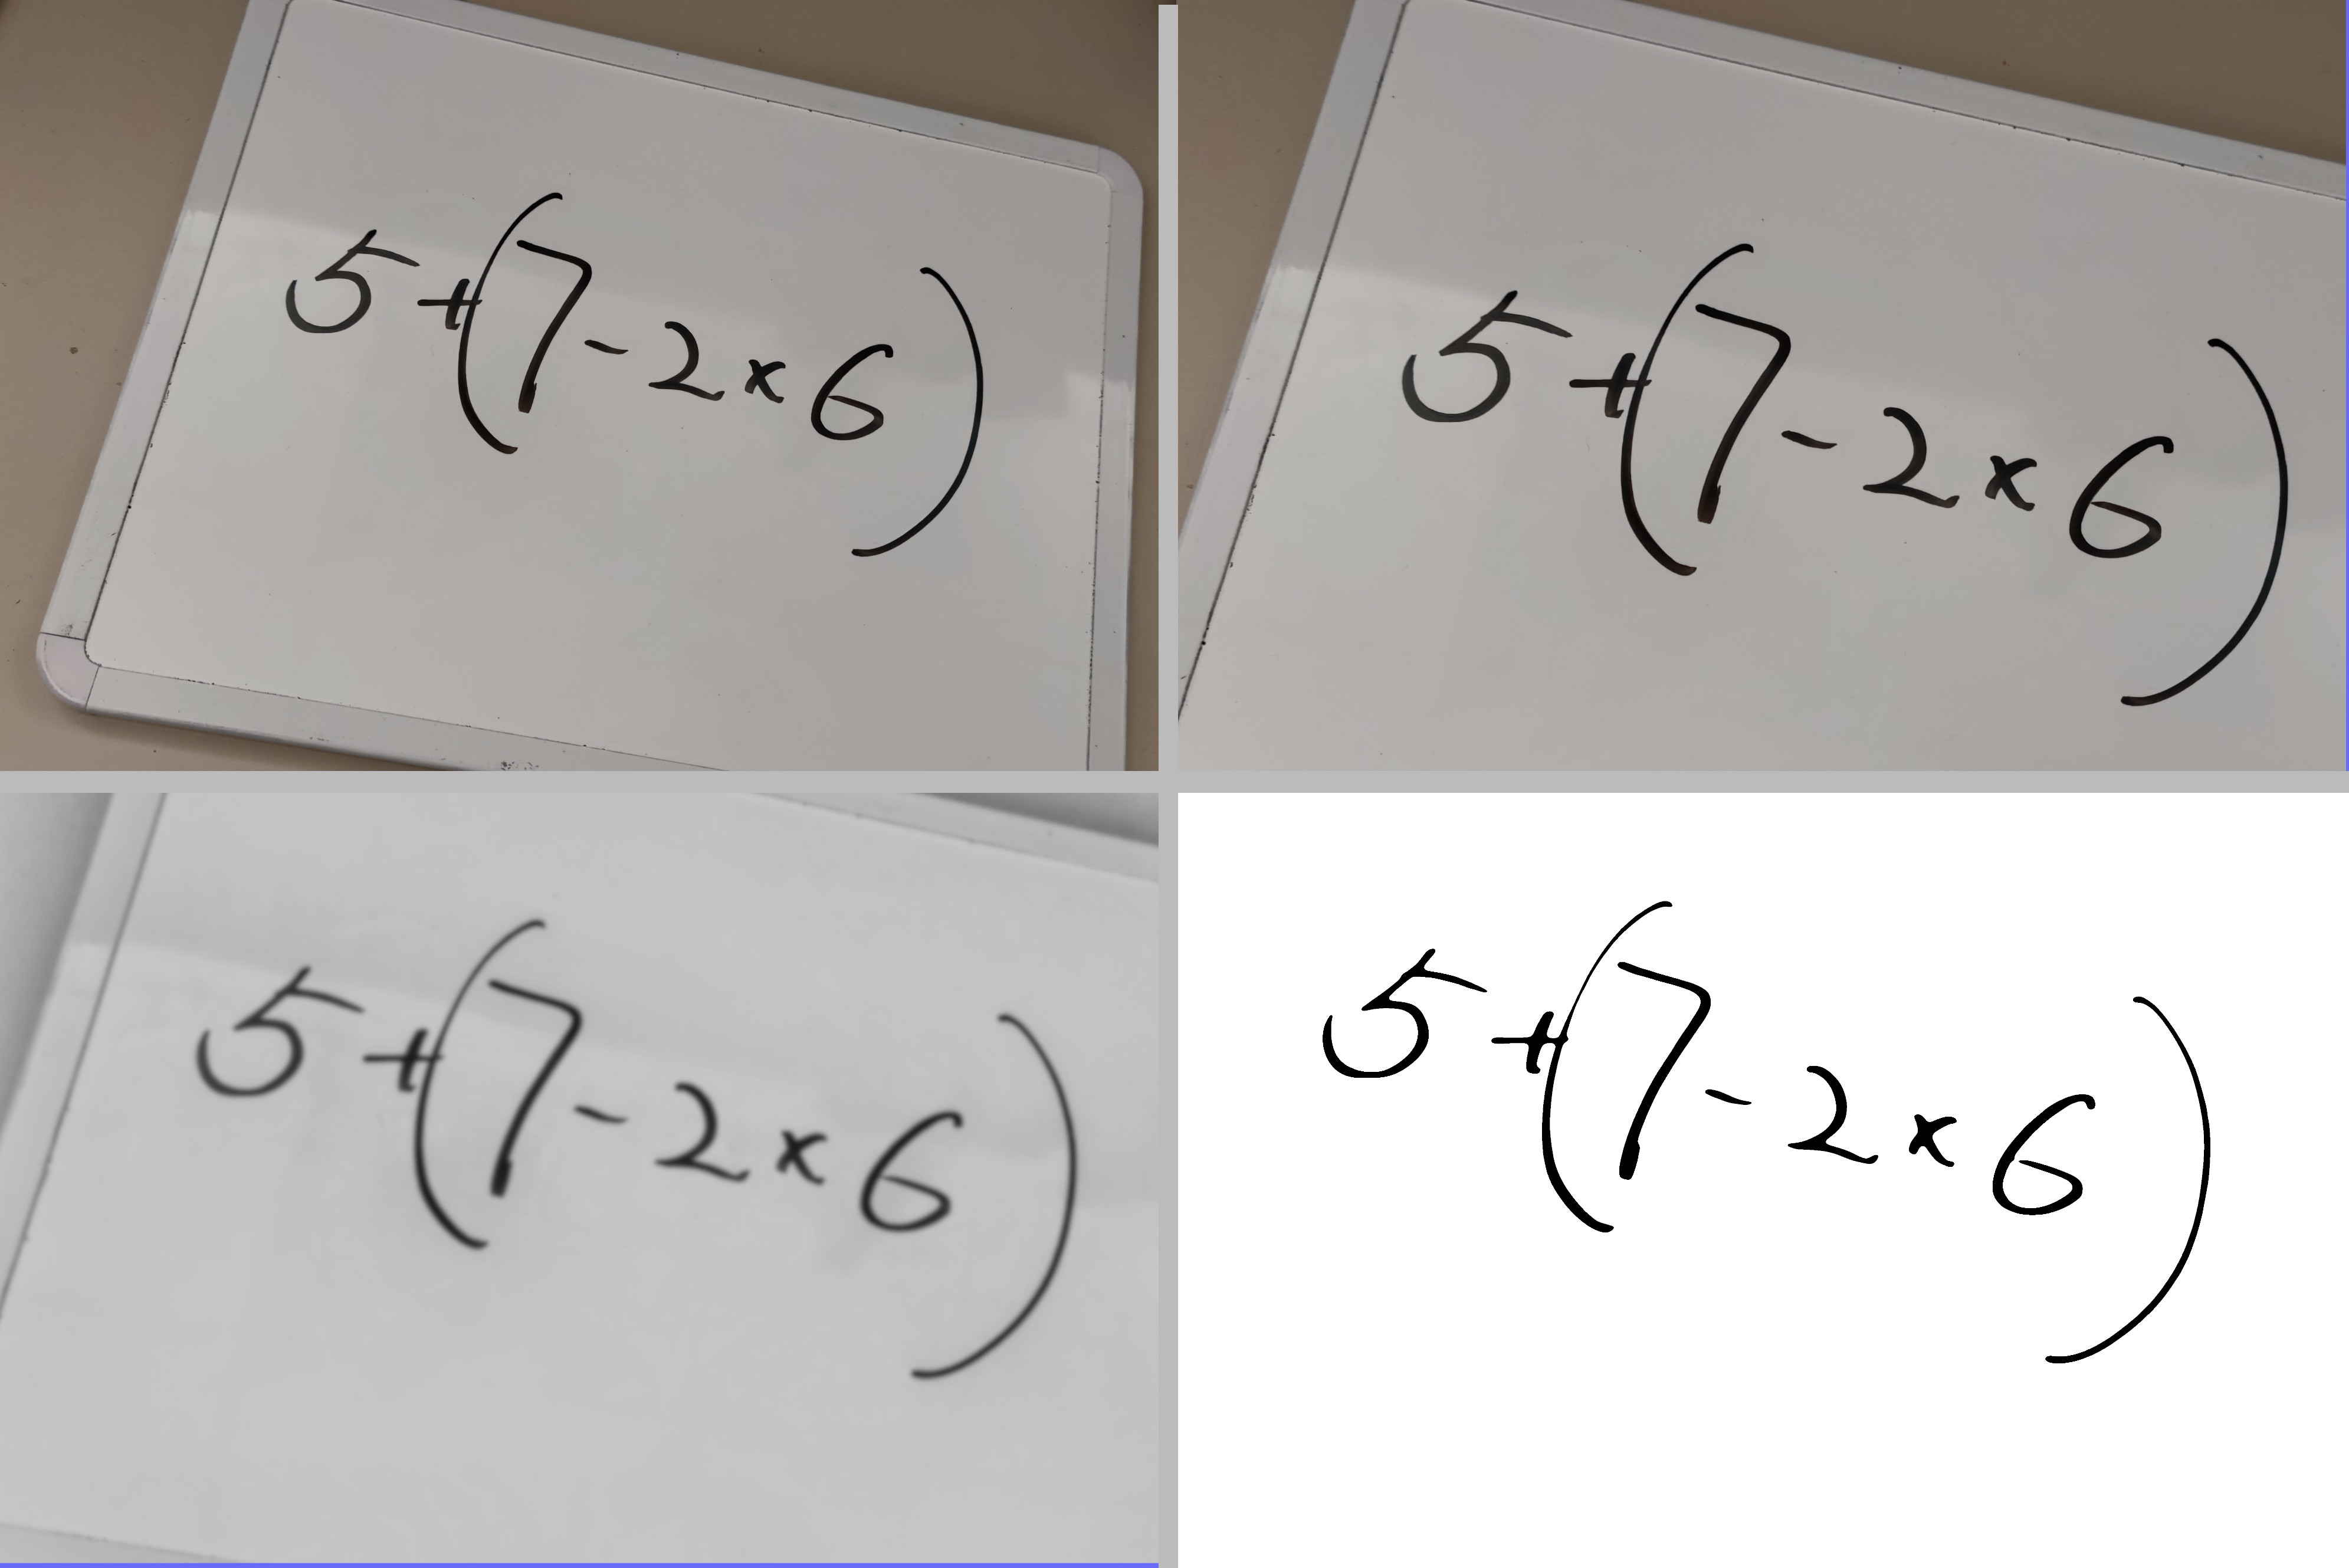 5+(7-2×6)
5+(7-2×6)
5+(7-2×6)
5+(7-2×6)